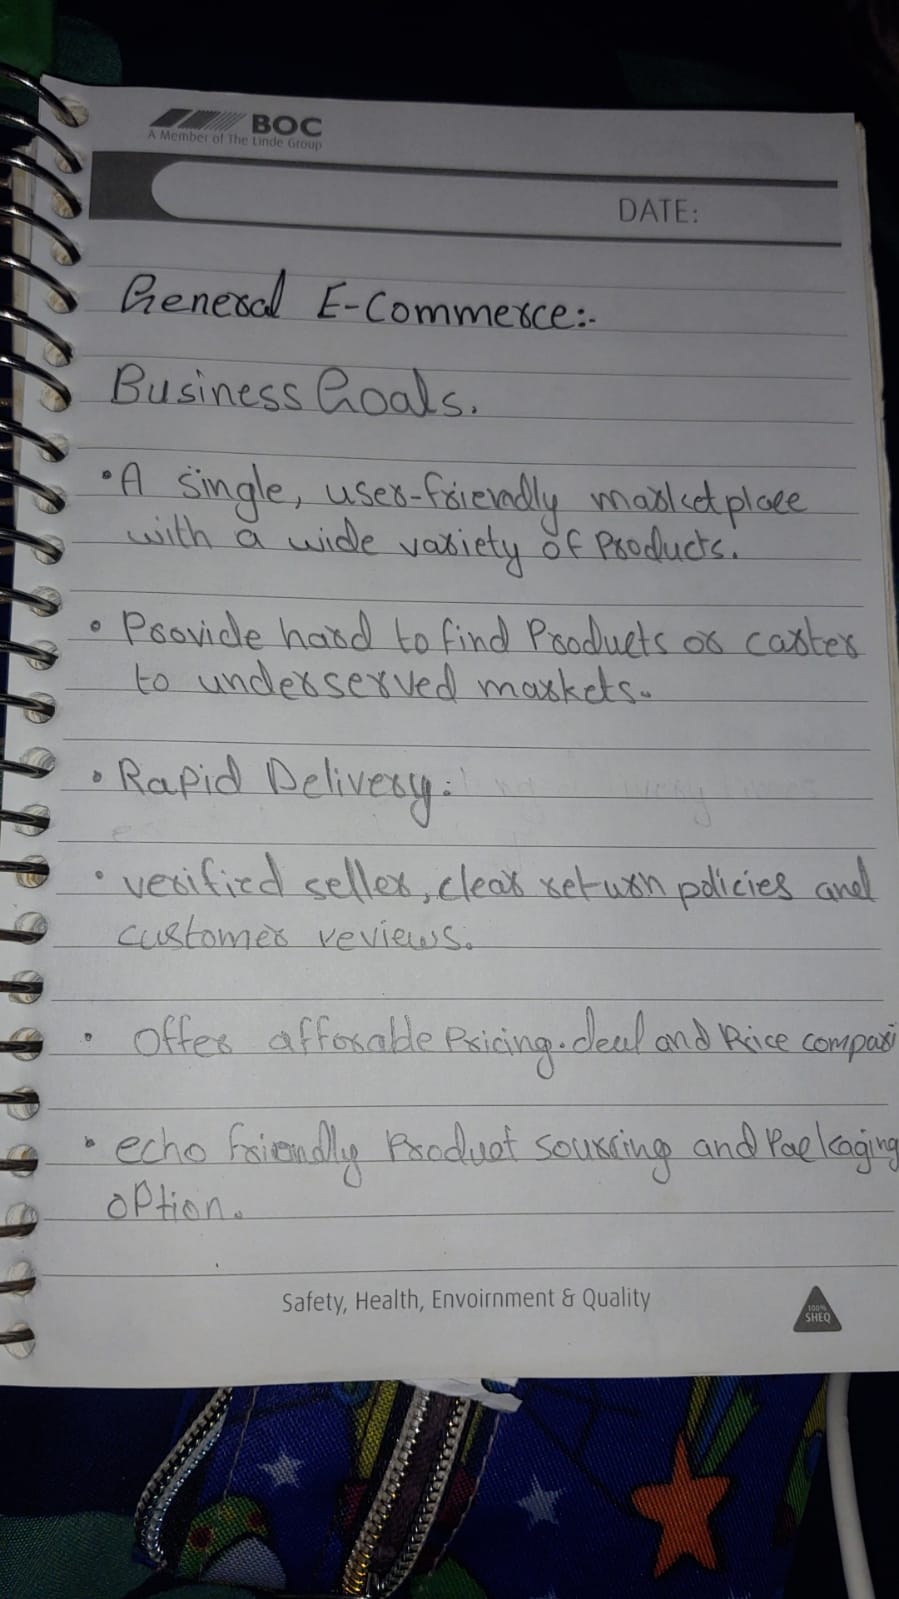 BOC
A Member of The Linde Group
DATE:
General E-Commerce:-
Business Goals.
• A single, user-friendly marketplace
with a wide variety of Products.
• Provide hard to find Products or carter
to underserved markets.
• Rapid Delivery:
• verified seller, clear return policies and
customer reviews.
• Offer afforable Pricing. deal and Price compari
• echo friendly Product sourcing and Packaging
option.
Safety, Health, Envoirnment & Quality
100%
SHEQ